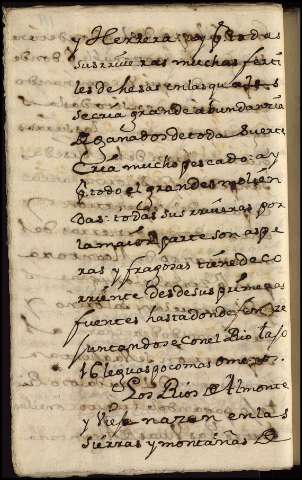 y Herrera: ay por todas
sus riueras muchas ferti
les dehesas en las quales
se cria grande abundancia
de ganados de toda suerte
Cria mucho pescado: ay
todo el grandes molien
das: todas sus riueras por
la maior parte son aspe
ras y fragosas tiene de co
rriente desde sus primeras
fuentes hasta donde fenece
juntandose con el Rio tajo
16 leguas poco mas o menos.
Los Rios Almonte
y Viej nazen en las
sierras y montañas de